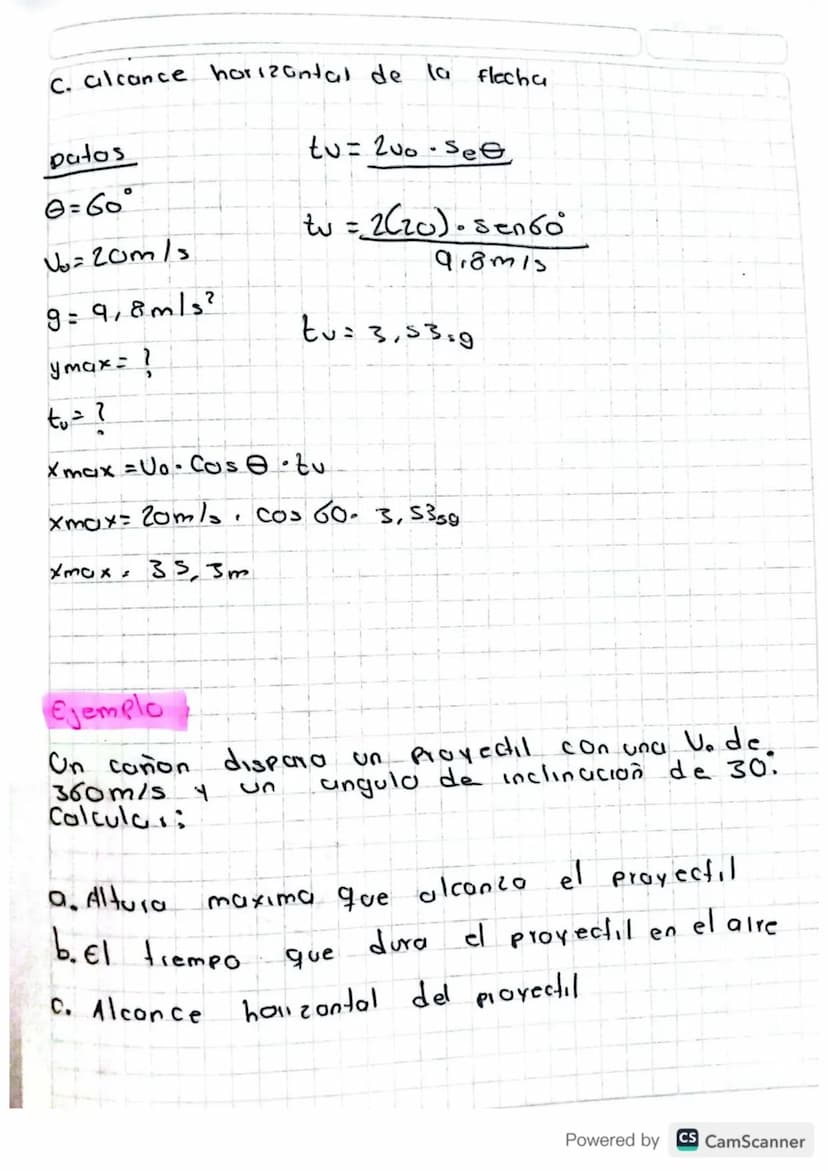 C. alcance horizontal de la flecha
Datos
θ=60°
Vo=20m/s
g=9,8m/s²
ymax=?
tv=?
tv=2vo·Seθ
tv=2(20)·sen60°
9,8m/s
tv=3,53sg
Xmax=Uo·Cosθ·tv
xmax=20m/s. cos 60. 3,53sg
Xmax=35,3m
Ejemplo
Un cañon disparo un Proyectil con una Vo de
360m/s y un angulo de inclinacioñ de 30°.
Calcular:
a. Altura maxima que alcanzo el proyectil
b. El tiempo que dura el proyectil en el aire
c. Alcance horizontal del proyectil
Powered by CS CamScanner